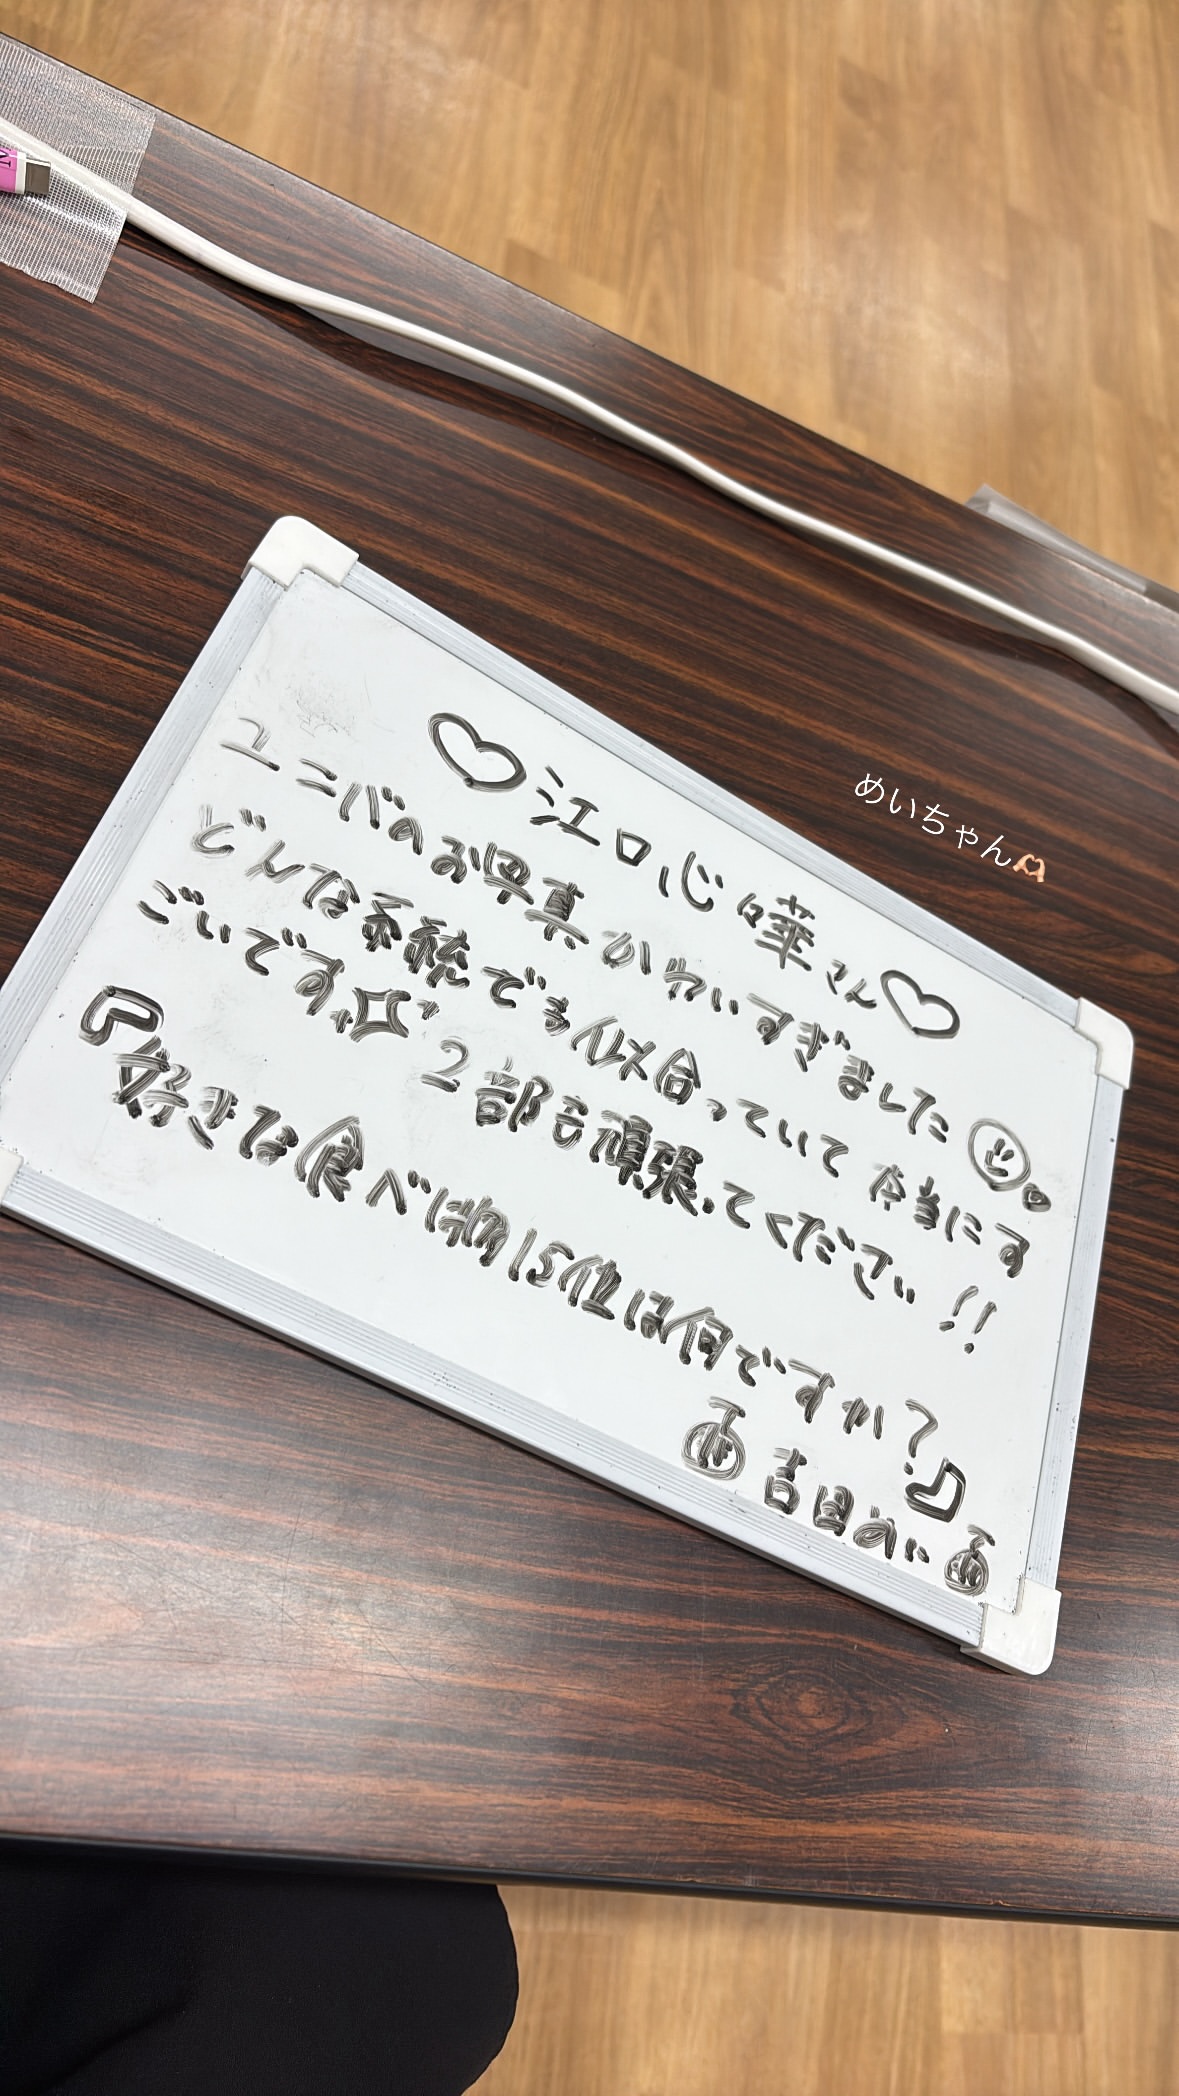 めいちゃん
♡江口心々華さん♡
ユニバのお写真かわいすぎました
どんな系統でも似合っていて本当にす
ごいです 2部も頑張ってください!!
『好きな食べ物15位は何ですか?』
吉田めい